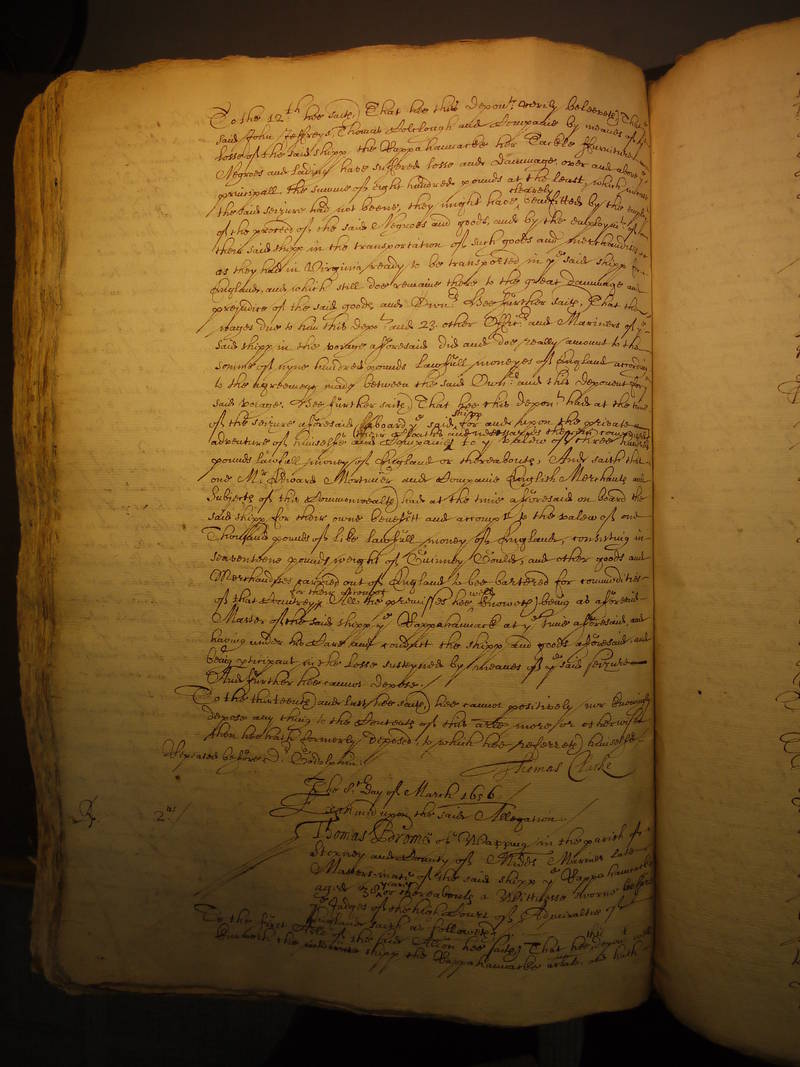 To the 12th hee saith, That hee this depont. verily beleeveth The
said John Jeffreys, Thomas Colclough and Companie by meanes of the
losse of the said shipp the Rappahannacke her Tackle ffurniture
Negroes and lading have suffered losse and dammage, over and above
principall, the summe of eight hundred pounds at the least, which
the said seizure had not beene, they might have clearely benifitted by the
of the proceed of the said Negroes and goods, and by the employmt. of
their said shipp in the transportation of such goods and merchandizes
as they had in Virginia ready to be transported in ye said shipp for
England, and which still doe remaine there to the great dammage and
prejudice of the said goods and Ownrs. Hee further saith, That the
wages due to him this depot. and 23. other Officrs. and Mariners of ye
said shipp in the voyage aforesaid did and doe really amount to the
somme of nyne hundred pounds lawfull moneyes of England according
to the agreement made between the said Ownrs. and this deponent for
said voiage. Hee further saith, That hee this depont. had at the time
of the seizure aforesaid aboard ye said shipp for and upon the private
adventure of himselfe and Companie their cloathes and necessaries to ye valew of three hundred
pounds lawfull money of England or thereabouts, And saith that
one Mr. Edward Mortimer and Companie English Merchants and
Subjects of this Commonwealth had at the time aforesaid on board the
said shipp for their owne benefitt and accompt to the valew of one
Thousand pounds of like lawfull money of England, consisting in
seaventeene pounds weight of Guinney Gould, and other goods and
Merchandizes carried out of England to bee bartered for commodities
of that Countrey for their accompt. All the premisses hee well knoweth being as aforesaid
Master of the said shipp ye Rappahannack at ye time aforesaid, and
having under his Care and conduct the shipp and goods aforesaid, and
being participant in the losse susteyned by meanes of ye said seizure
And further hee cannot depose.
To the thirteenth and last hee saith, hee cannot positively nor knowingly
depose any thing to the Contents of this arle more or otherwise
then hee hath formerly deposed, to which hee referreth himselfe
Repeated before Dr. Godolphin.
Thomas Clarke
The 8th. Day of March 1656.
Examined upon the said Allegation.
2us.
Thomas Brome of Wapping in the parish of
Stepney and County of Middx Mariner late
Masters-mate of the said shipp ye Rappahannacke
aged 30 yeares or thereabouts a Wittnesse sworne before
ye Judges of the high Court of Admiraltie of
England saith as followeth.
To the first Arle of the said Allon hee saith, That hee this depont. well
knoweth the shipp the Rappahannacke arlate, and hath